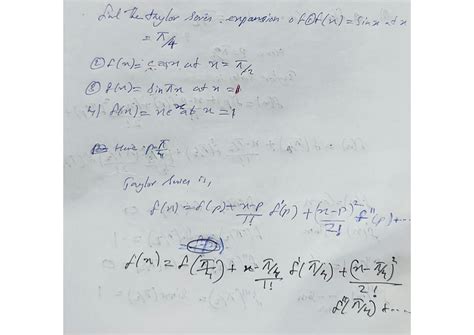 Find the taylor series expansion of ① f(x) = sinx at x
= π/4
② f(x) = cosx at x = π/2
③ f(x) = sinπx at x = 1
4) f(x) = xeˣ at x = 1
Here p = π/4
Taylor series is,
f(x) = f(p) + x-p/1! f'(p) + (x-p)²/2! f''(p) + ...
f(x) = f(π/4) + x-π/4/1! f'(π/4) + (x-π/4)²/2!
f''(π/4) + ...